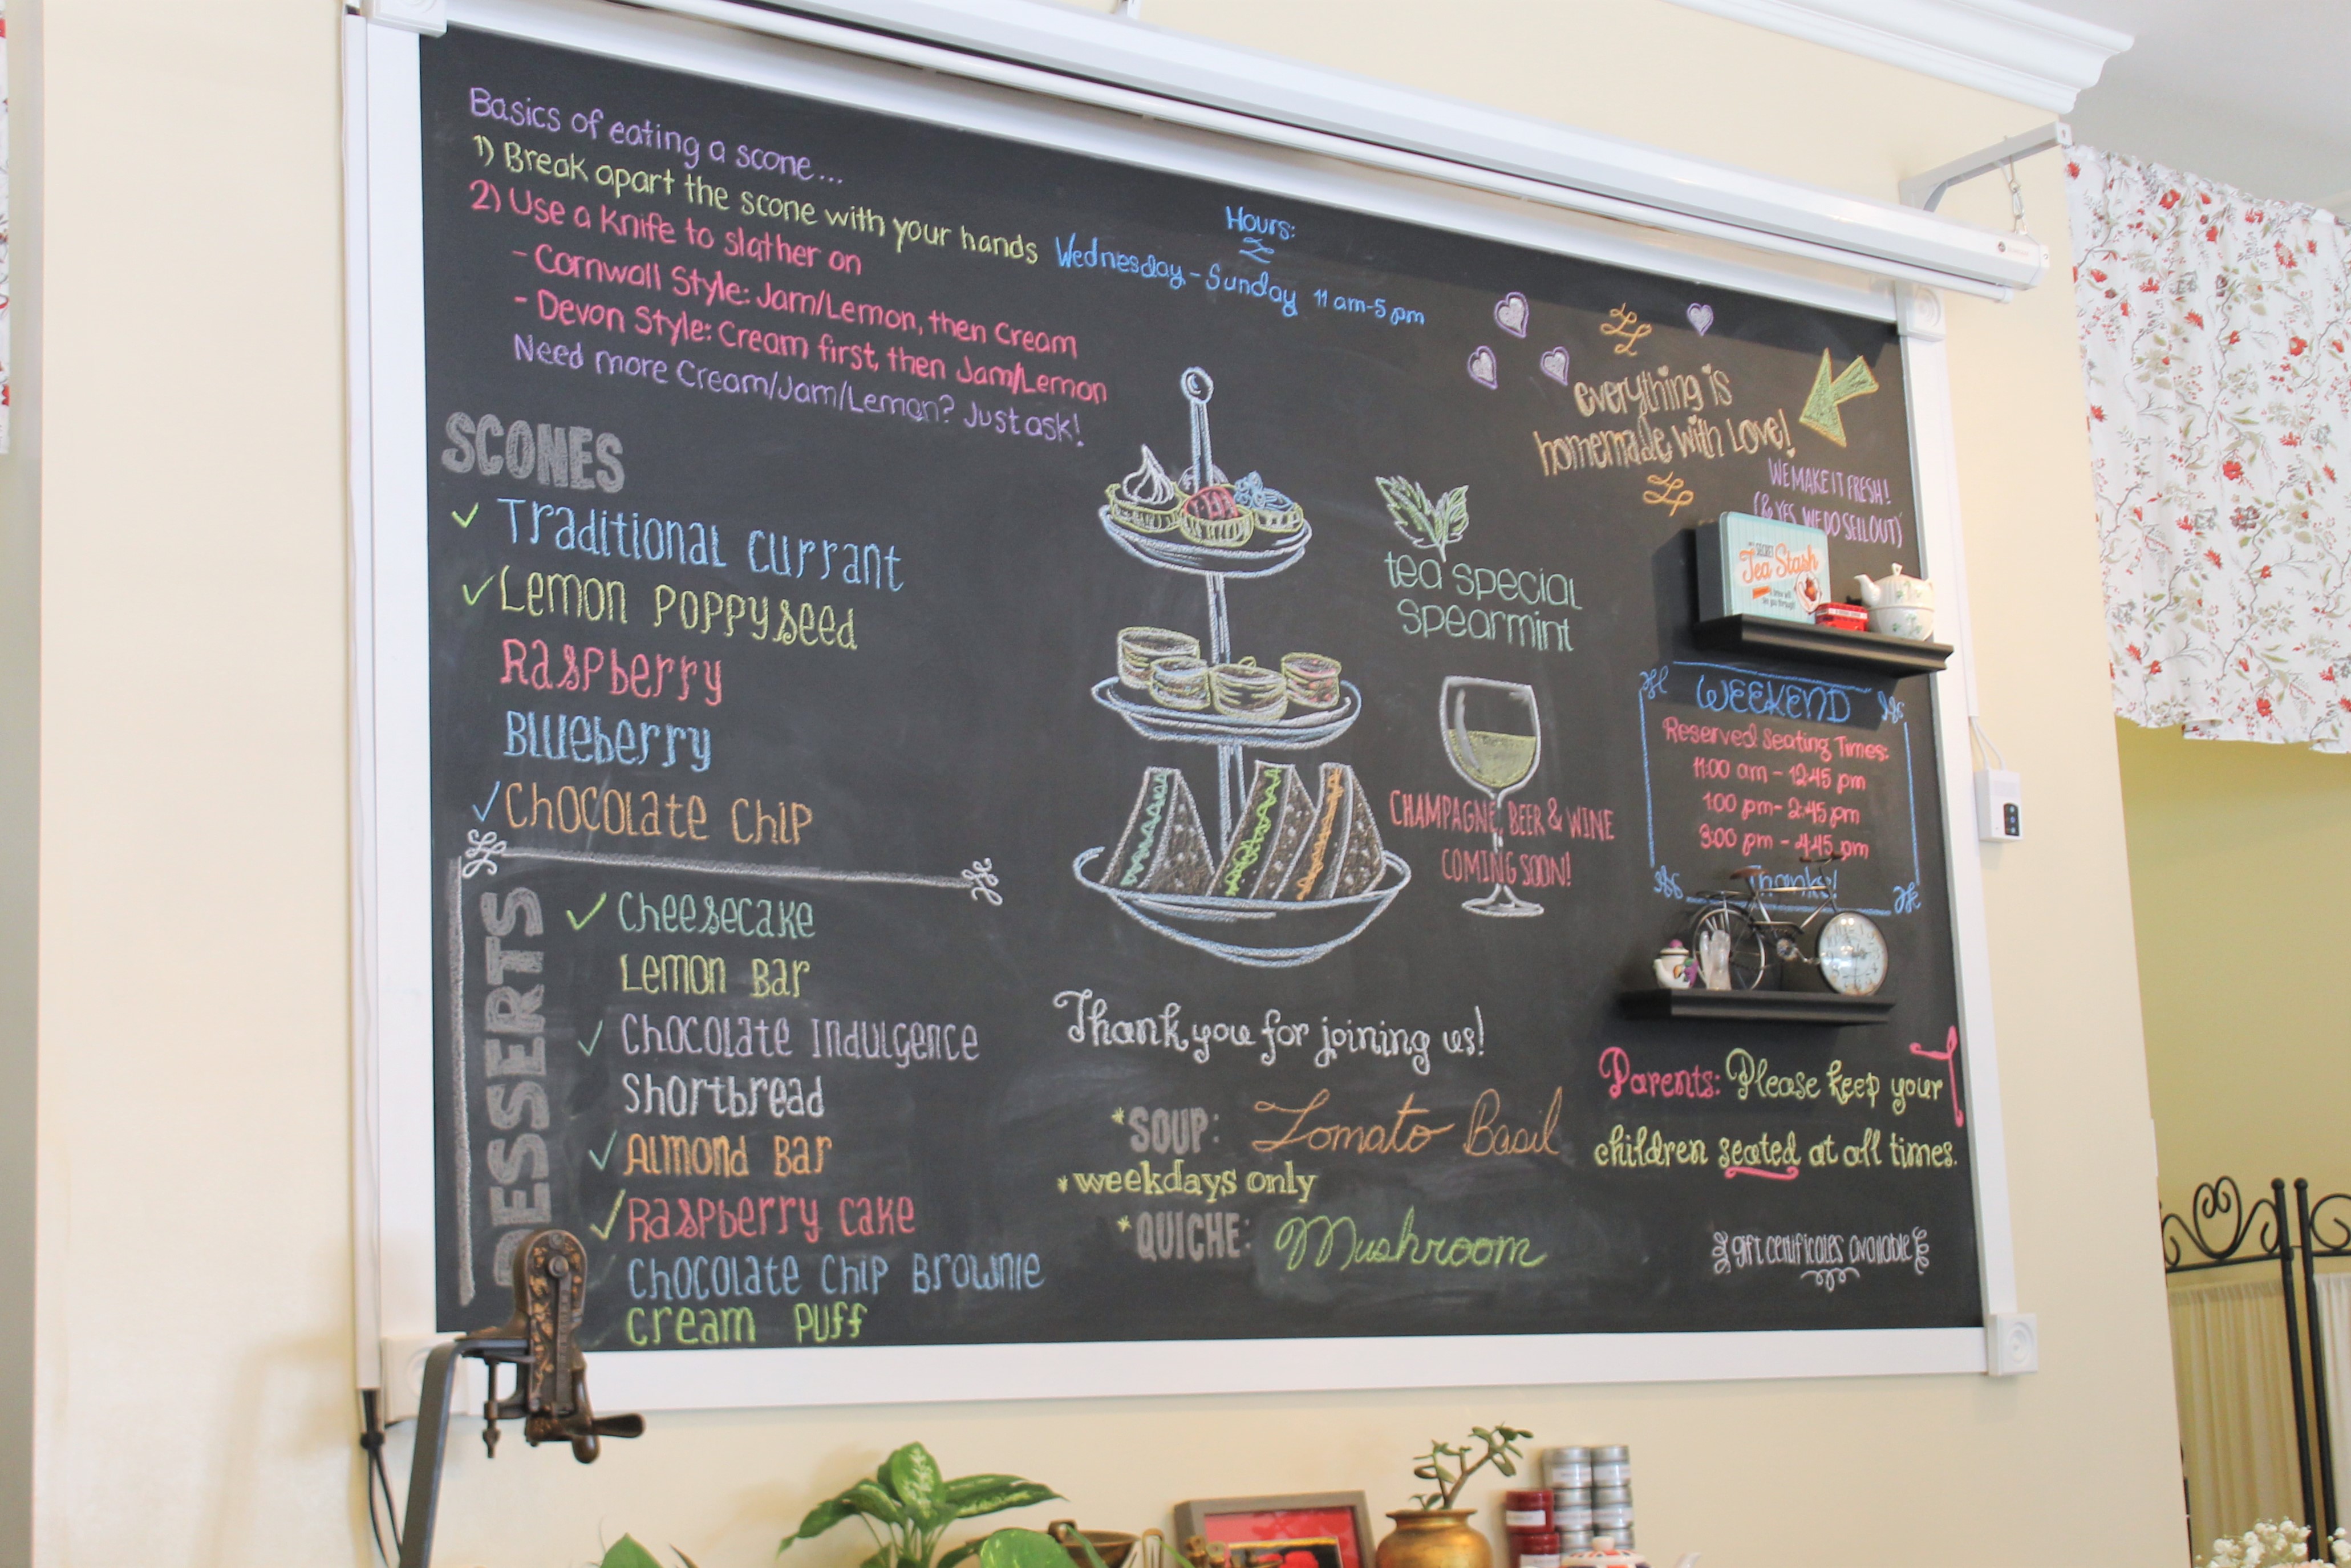 Basics of eating a scone...
1) Break apart the scone with your hands
2) Use a Knife to slather on
- Cornwall Style: Jam/Lemon, then Cream
- Devon Style: Cream first, then Jam/Lemon
Need more Cream/Jam/Lemon? Just ask!
Hours:
Wednesday - Sunday 11 am-5 pm
everything is
homemade with Love!
WE MAKE IT FRESH!
(& YES, WE DO SELL OUT)
SCONES
✓ Traditional Currant
✓ Lemon Poppyseed
Raspberry
Blueberry
✓ Chocolate Chip
DESSERTS
✓ Cheesecake
Lemon Bar
✓ Chocolate Indulgence
Shortbread
✓ Almond Bar
✓ Raspberry Cake
Chocolate Chip Brownie
Cream Puff
tea special
spearmint
CHAMPAGNE, BEER & WINE
COMING SOON!
SECRET
Tea Stash
WEEKEND
Reserved Seating Times:
11:00 am - 12:45 pm
1:00 pm - 2:45 pm
3:00 pm - 4:45 pm
Thanks!
Thank you for joining us!
*SOUP: Tomato Basil
*weekdays only
*QUICHE: Mushroom
Parents: Please keep your
children seated at all times.
gift certificates available